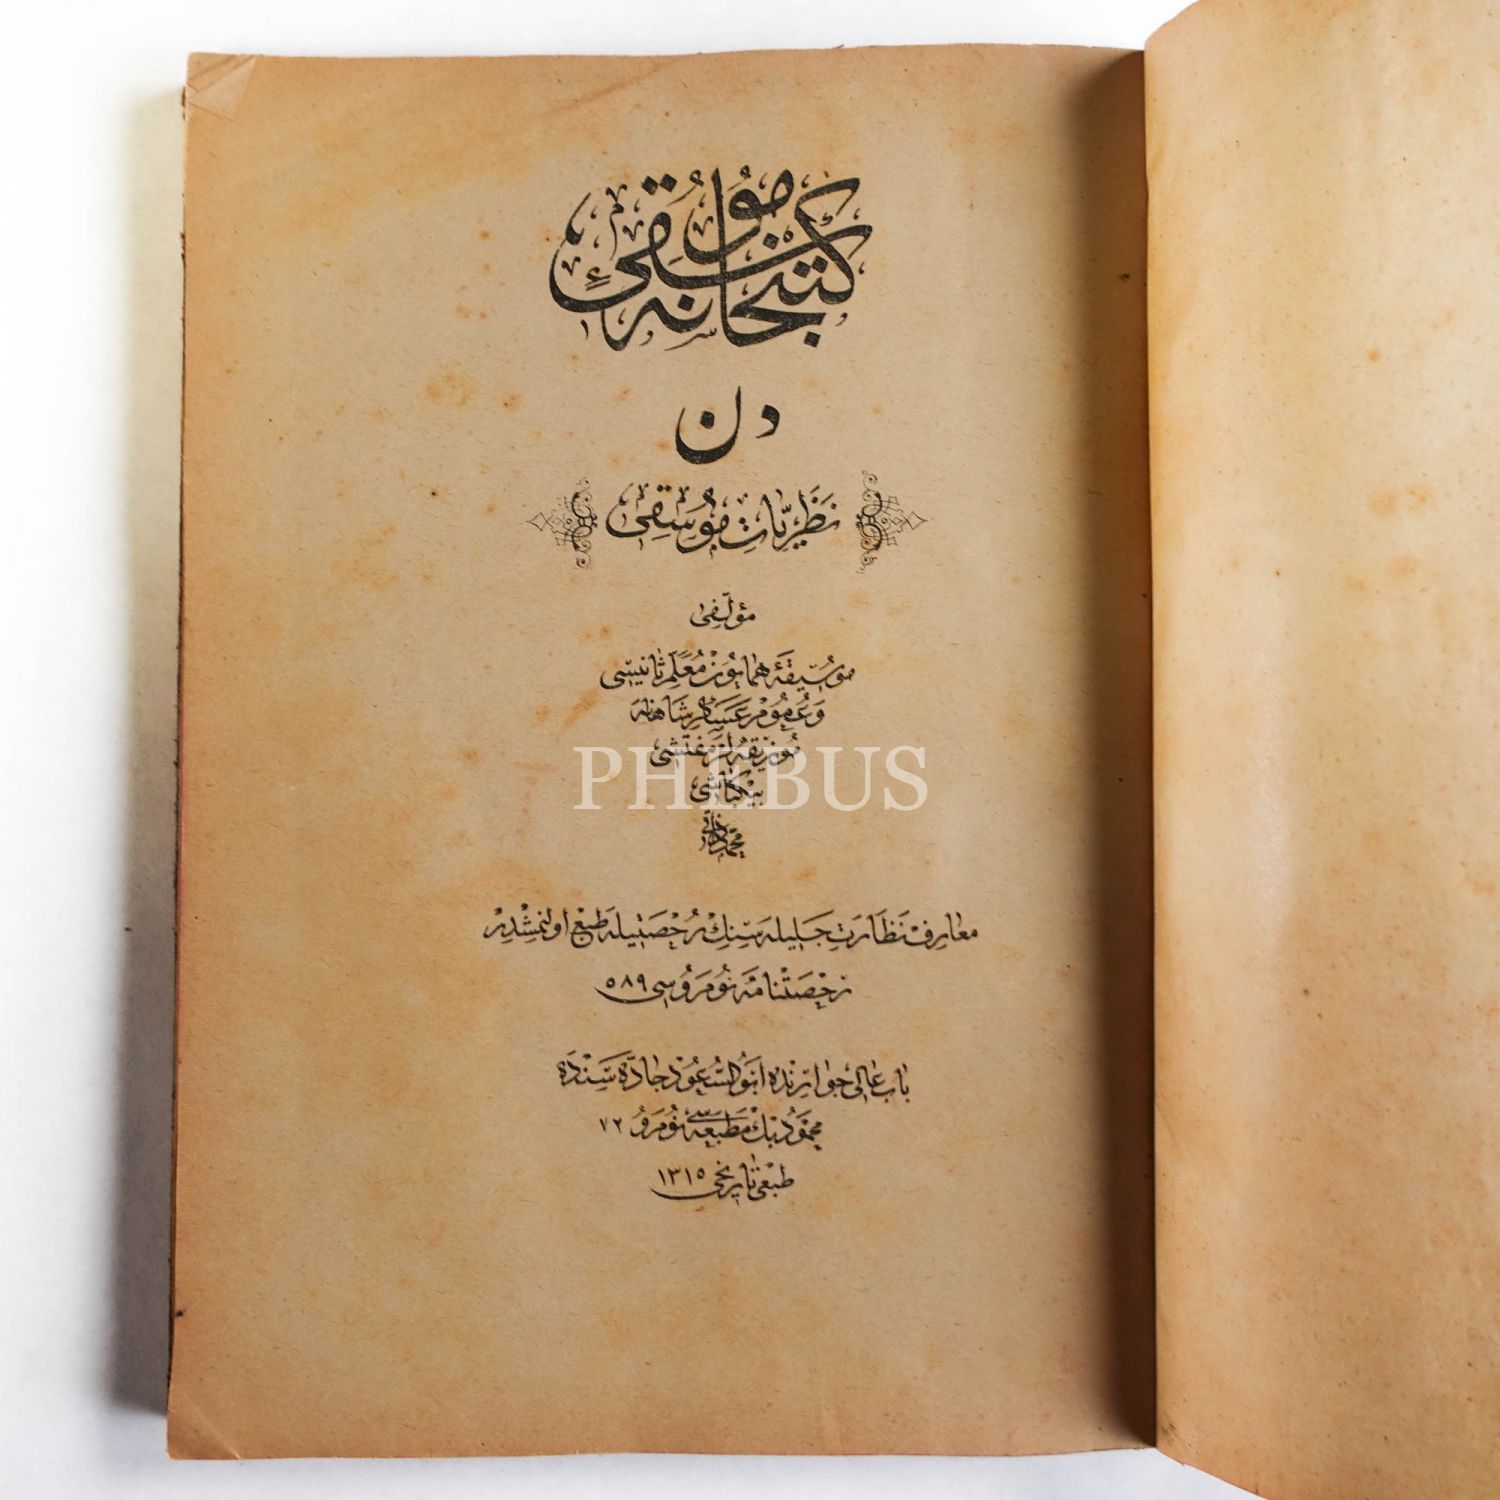 كتبخانۀ موسيقی
دن
نظريات موسيقی
مؤلفی
موسيقۀ همايون معلم ثانيسی
و عموم عساكر شاهانه
موزيقه لر مفتشی
بيكباشی
محمد ذاتی
معارف نظارت جليله سنك رخصتيله طبع اولنمشدر
رخصتنامه نومروسی ٥٨٩
باب عالی جوارنده ابوالسعود جاده سنده
محمود بك مطبعه سی نومرو ٧٢
طبعی تاريخی ١٣١٥
PHEBUS